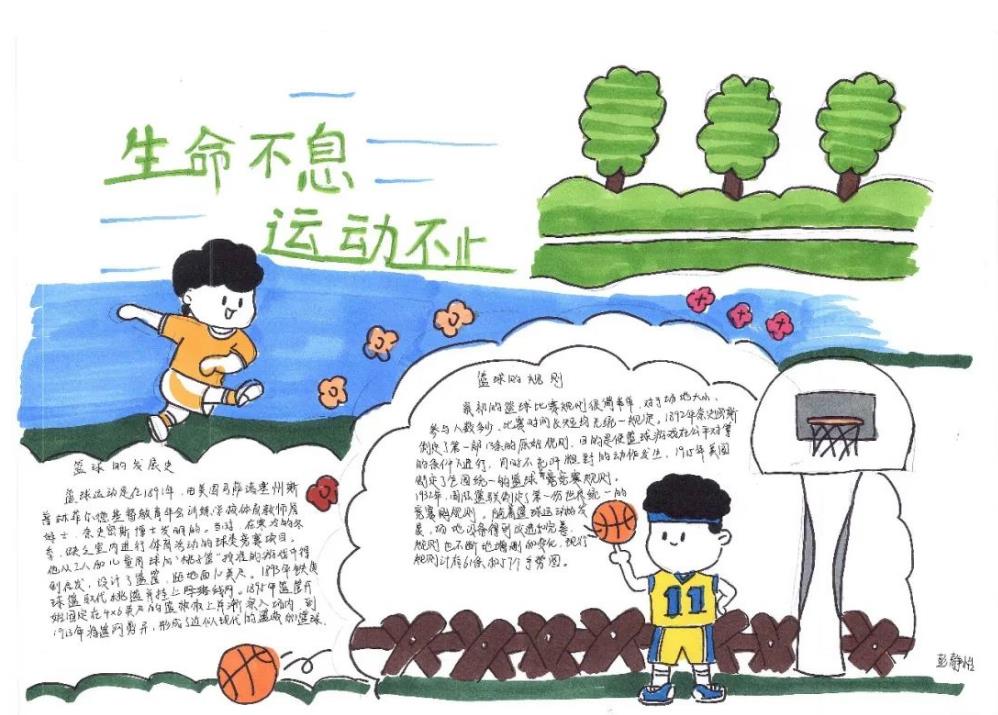 生命不息
运动不止
篮球的规则
最初的篮球比赛规则很简单,对于场地大小、
参与人数多少、比赛时间长短均无统一规定。1892年奈史密斯
制定了第一部13条的原始规则,目的是使篮球游戏在公平对等
的条件下进行,同时不允许粗野的动作发生。1915年美国
制定了全国统一的篮球竞赛规则。
1932年,国际篮联制定了第一份世界统一的
竞赛规则。随着篮球运动的发
展,场地设备得到改进和完善,
规则也不断地增删和变化,现行
规则计有61条和手势图。
11
篮球的发展史
篮球运动是在1891年,由美国马萨诸塞州斯
普林菲尔德基督教青年会训练学校体育教师詹
姆士·奈史密斯博士发明的。当时,在寒冷的冬
季,缺乏室内进行体育活动的球类竞赛项目。
他从工人和儿童用球向"桃子篮"投准的游戏中得
到启发,设计了篮筐,距地面10英尺。1893年铁质
球篮取代桃篮并挂上线网。1895年篮筐开
始固定在4×6英尺的篮板上并渐深入场内,到
1913年将篮网剪开,形成了近似现代的篮板和篮球。
彭静怡